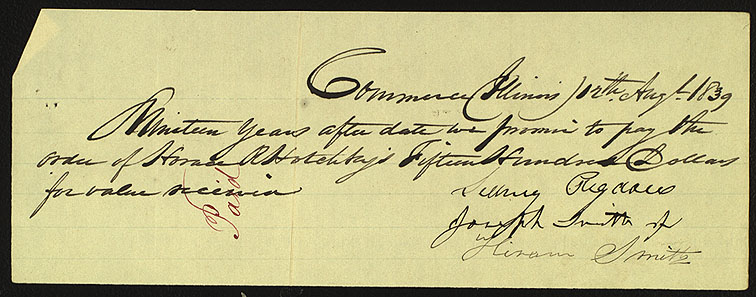 Commerce (Illinois) 12th. Augt. 1839
Nineteen Years after date we promise to pay the
order of Horace R Hotchkiss Fifteen Hundred Dollars
for value received
Paid
Sidney Rigdon
Joseph Smith Jr
Hiram Smith